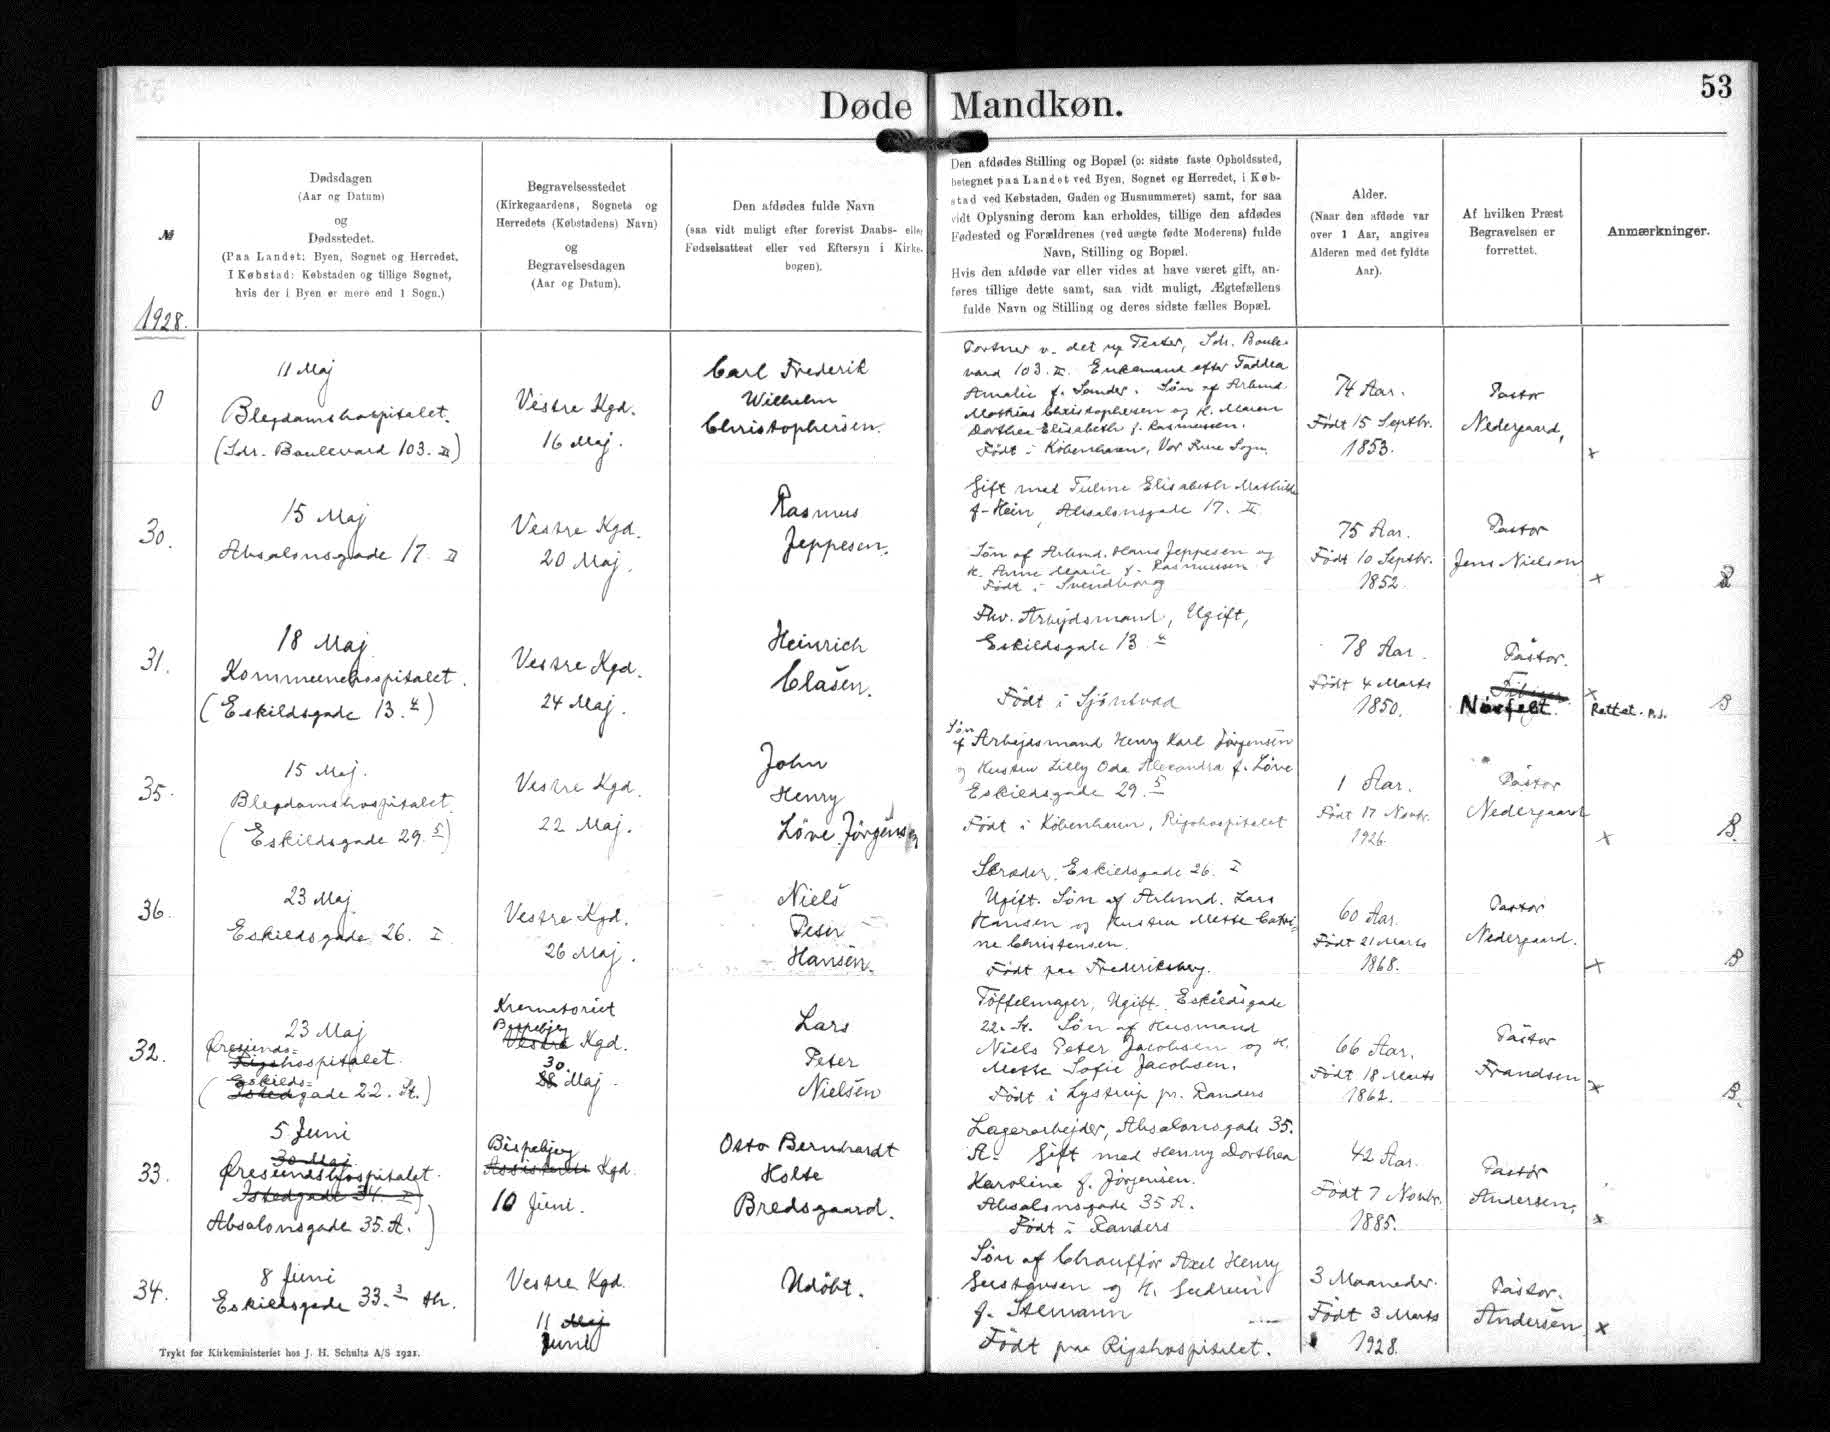 53
Døde Mandkøn.
№
Dødsdagen
(Aar og Datum)
og
Dødsstedet.
(Paa Landet: Byen, Sognet og Herredet,
I Købstad: Købstaden og tillige Sognet,
hvis der i Byen er mere end 1 Sogn.)
Begravelsesstedet
(Kirkegaardens, Sognets og
Herredets (Købstadens) Navn)
og
Begravelsesdagen
(Aar og Datum).
Den afdødes fulde Navn
(saa vidt muligt efter forevist Daabs- eller
Fødselsattest eller ved Eftersyn i Kirke-
bogen).
Den afdødes Stilling og Bopæl (o: sidste faste Opholdssted,
betegnet paa Landet ved Byen, Sognet og Herredet, i Køb-
stad ved Købstaden, Gaden og Husnummeret) samt, for saa
vidt Oplysning derom kan erholdes, tillige den afdødes
Fødested og Forældrenes (ved uægte fødte Moderens) fulde
Navn, Stilling og Bopæl.
Hvis den afdøde var eller vides at have været gift, an-
føres tillige dette samt, saa vidt muligt, Ægtefællens
fulde Navn og Stilling og deres sidste fælles Bopæl.
Alder.
(Naar den afdøde var
over 1 Aar, angives
Alderen med det fyldte
Aar).
Af hvilken Præst
Begravelsen er
forrettet.
Anmærkninger.
1928.
0
11 Maj
Blegdamshospitalet.
(Sdr. Boulevard 103. III)
Vestre Kgd.
16 Maj.
Carl Frederik
Wilhelm
Christophersen.
Portner v. det ny Teater, Sdr. Boule-
vard 103. III. Enkemand efter Taddea
Amalie f. Sander. Søn af Arbmd.
Mathias Christophersen og H. Maren
Dorthea Elisabeth f. Rasmussen.
Født i København, Vor Frue Sogn.
74 Aar.
Født 15 Septbr.
1853.
Pastor
Nedergaard,
x
30.
15 Maj
Absalonsgade 17. II
Vestre Kgd.
20 Maj.
Rasmus
Jeppesen.
Gift med Juline Elisabeth Mathilde
f. Hein, Absalonsgade 17. II
Søn af Arbmd. Hans Jeppesen og
H. Anne Marie f. Rasmussen
Født i Svendborg
75 Aar.
Født 10 Septbr.
1852.
Pastor
Jens Nielsen
x
31.
18 Maj
Kommunehospitalet.
(Eskildsgade 13. 4)
Vestre Kgd.
24 Maj.
Heinrich
Clasen.
Fhv. Arbejdsmand, Ugift,
Eskildsgade 13. 4
Født i Sjöntvad
78 Aar.
Født 4 Marts
1850.
Pastor.
Fibiger
Nørfelt.
x
Rettet. P.J.
B
35.
15 Maj.
Blegdamshospitalet.
(Eskildsgade 29. 5)
Vestre Kgd.
22 Maj.
John
Henry
Løve Jørgensen
Søn
af Arbejdsmand Henry Karl Jørgensen
og Hustru Lilly Oda Alexandra f. Løve
Eskildsgade 29. 5
Født i København, Rigshospitalet
1 Aar.
Født 17 Novbr.
1926.
Pastor
Nedergaard
x
B.
36.
23 Maj
Eskildsgade 26. I
Vestre Kgd.
26 Maj.
Niels
Peter
Hansen.
Skræder, Eskildsgade 26. I
Ugift. Søn af Arbmd. Lars
Hansen og Hustru Mette Catri-
ne Christensen.
Født paa Frederiksberg.
60 Aar.
Født 21 Marts
1868.
Pastor
Nedergaard.
x
B
32.
23 Maj
Øresunds-
Rigshospitalet.
Eskilds-
(Istedgade 22. St.)
Krematoriet
Bispebjerg
Vestre Kgd.
30.
28 Maj.
Lars
Peter
Nielsen
Tøffelmager, Ugift. Eskildsgade
22. St. Søn af Husmand
Niels Peter Jacobsen og H.
Mette Sofie Jacobsen.
Født i Lystrup pr. Randers
66 Aar.
Født 18 Marts
1862.
Pastor
Frandsen
x
B.
33.
5 Juni
30 Maj
Øresundshospitalet.
Istedgade 34. II)
Absalonsgade 35. A.)
Bispebjerg
Assistents Kgd.
10 Juni.
Otto Bernhardt
Holte
Bredsgaard.
Lagerarbejder, Absalonsgade 35.
A. Gift med Henny Dorthea
Karoline f. Jørgensen.
Absalonsgade 35 A.
Født i Randers
42 Aar.
Født 7 Novbr.
1885.
Pastor
Andersen,
x
34.
8 Juni
Eskildsgade 33. 3 th.
Vestre Kgd.
11 Maj
Juni
Udøbt.
Søn af Chauffør Axel Henry
Gustavsen og H. Gudrun
f. Stemann
Født paa Rigshospitalet.
3 Maaneder.
Født 3 Marts
1928.
Pastor.
Andersen
x
Trykt for Kirkeministeriet hos J. H. Schultz A/S 1921.